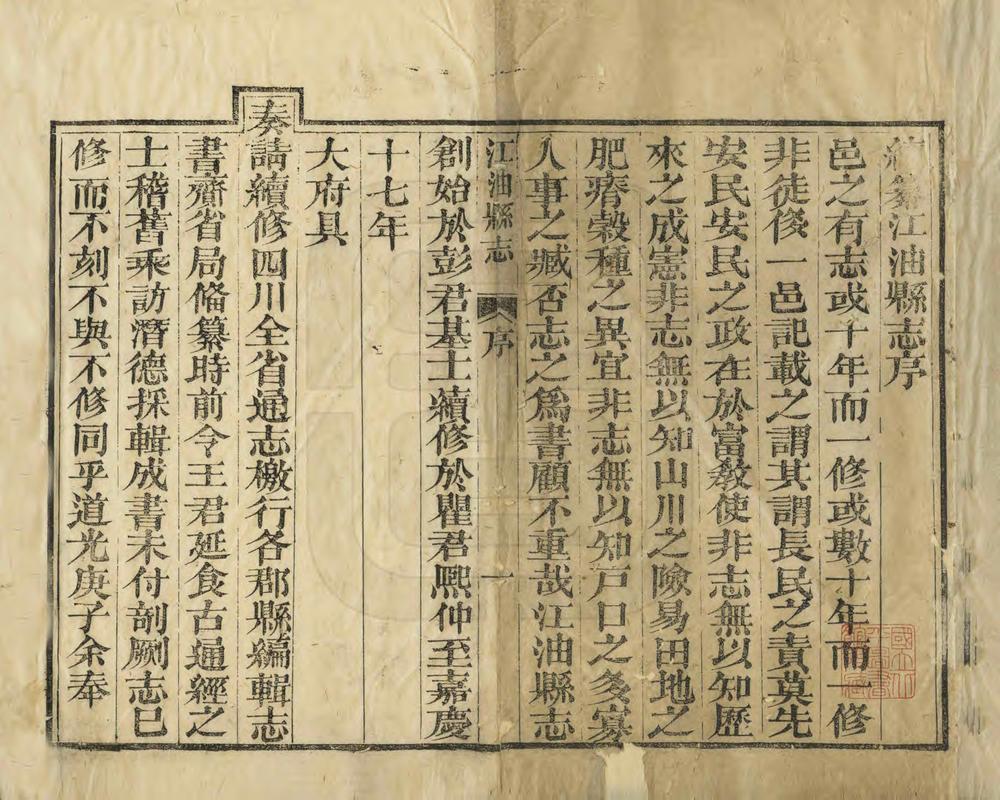 續纂江油縣志序
邑之有志或十年而一修或數十年而一修
非徒後一邑記載之謂其謂長民之責莫先
安民安民之政在於富敎使非志無以知歷
來之成憲非志無以知山川之險易田地之
肥瘠榖種之異宜非志無以知戸口之多寡
人事之臧否志之爲書顧不重哉江油縣志
江油縣志 序 一
創始於彭君基士續修於瞿君熙仲至嘉慶
十七年
大府具
奏請續修四川全省通志檄行各郡縣編輯志
書齎省局俻纂時前令王君延食古通經之
士稽舊乘訪潛德採輯成書未付剞劂志已
修而不刻不與不修同乎道光庚子余奉